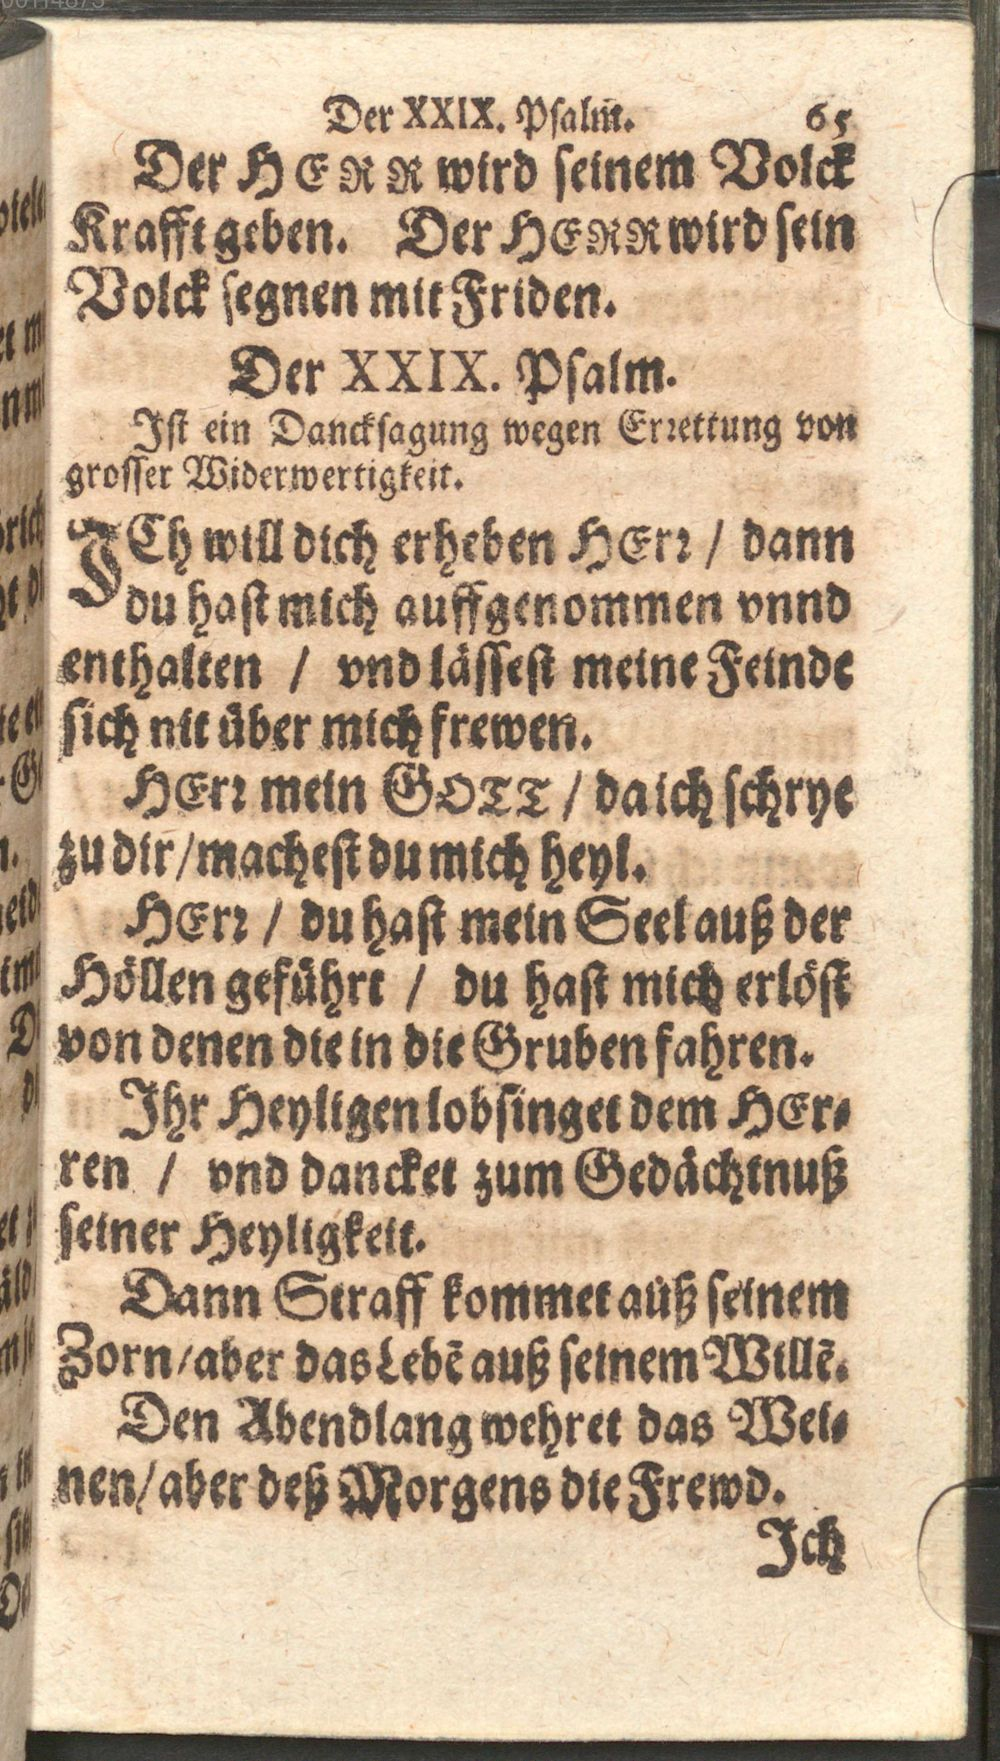 Der XXIX. Psalm̃. 65
Der HERR wird seinem Volck
Krafft geben. Der HERR wird sein
Volck segnen mit Friden.
Der XXIX. Psalm.
Ist ein Dancksagung wegen Errettung von
grosser Widerwertigkeit.
ICh will dich erheben HErr / dann
du hast mich auffgenommen vnnd
enthalten / vnd lässest meine Feinde
sich nit über mich frewen.
HErr mein GOTT / da ich schrye
zu dir / machest du mich heyl.
HErr / du hast mein Seel auß der
Höllen geführt / du hast mich erlöst
von denen die in die Gruben fahren.
Ihr Heyligen lobsinget dem HEr-
ren / vnd dancket zum Gedächtnuß
seiner Heyligkeit.
Dann Straff kommet auß seinem
Zorn / aber das Lebē auß seinem Willē.
Den Abendlang wehret das Wei-
nen / aber deß Morgens die Frewd.
Ich